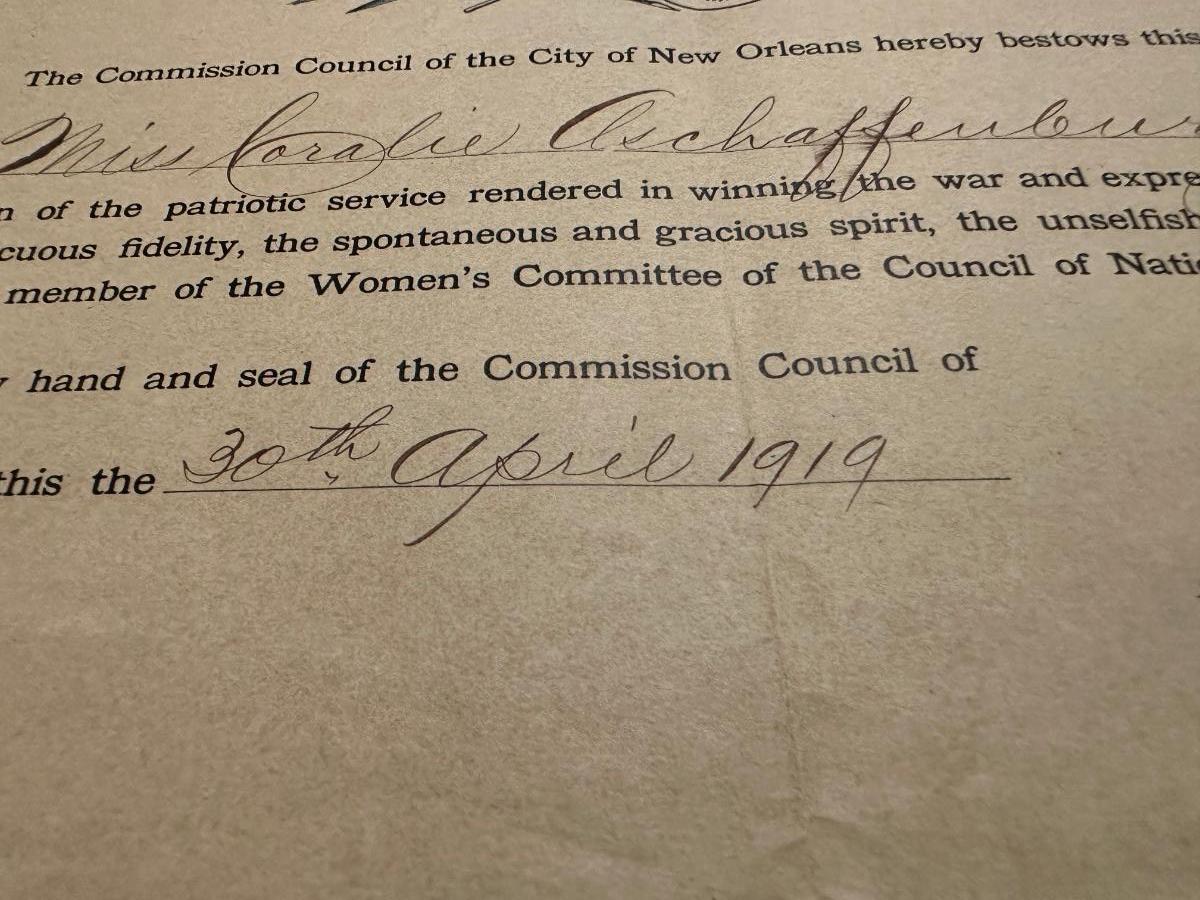 The Commission Council of the City of New Orleans hereby bestows this
Miss Coralie Aschaffenbu
n of the patriotic service rendered in winning the war and expre
cuous fidelity, the spontaneous and gracious spirit, the unselfish
member of the Women's Committee of the Council of Natio
y hand and seal of the Commission Council of
this the 30th April 1919